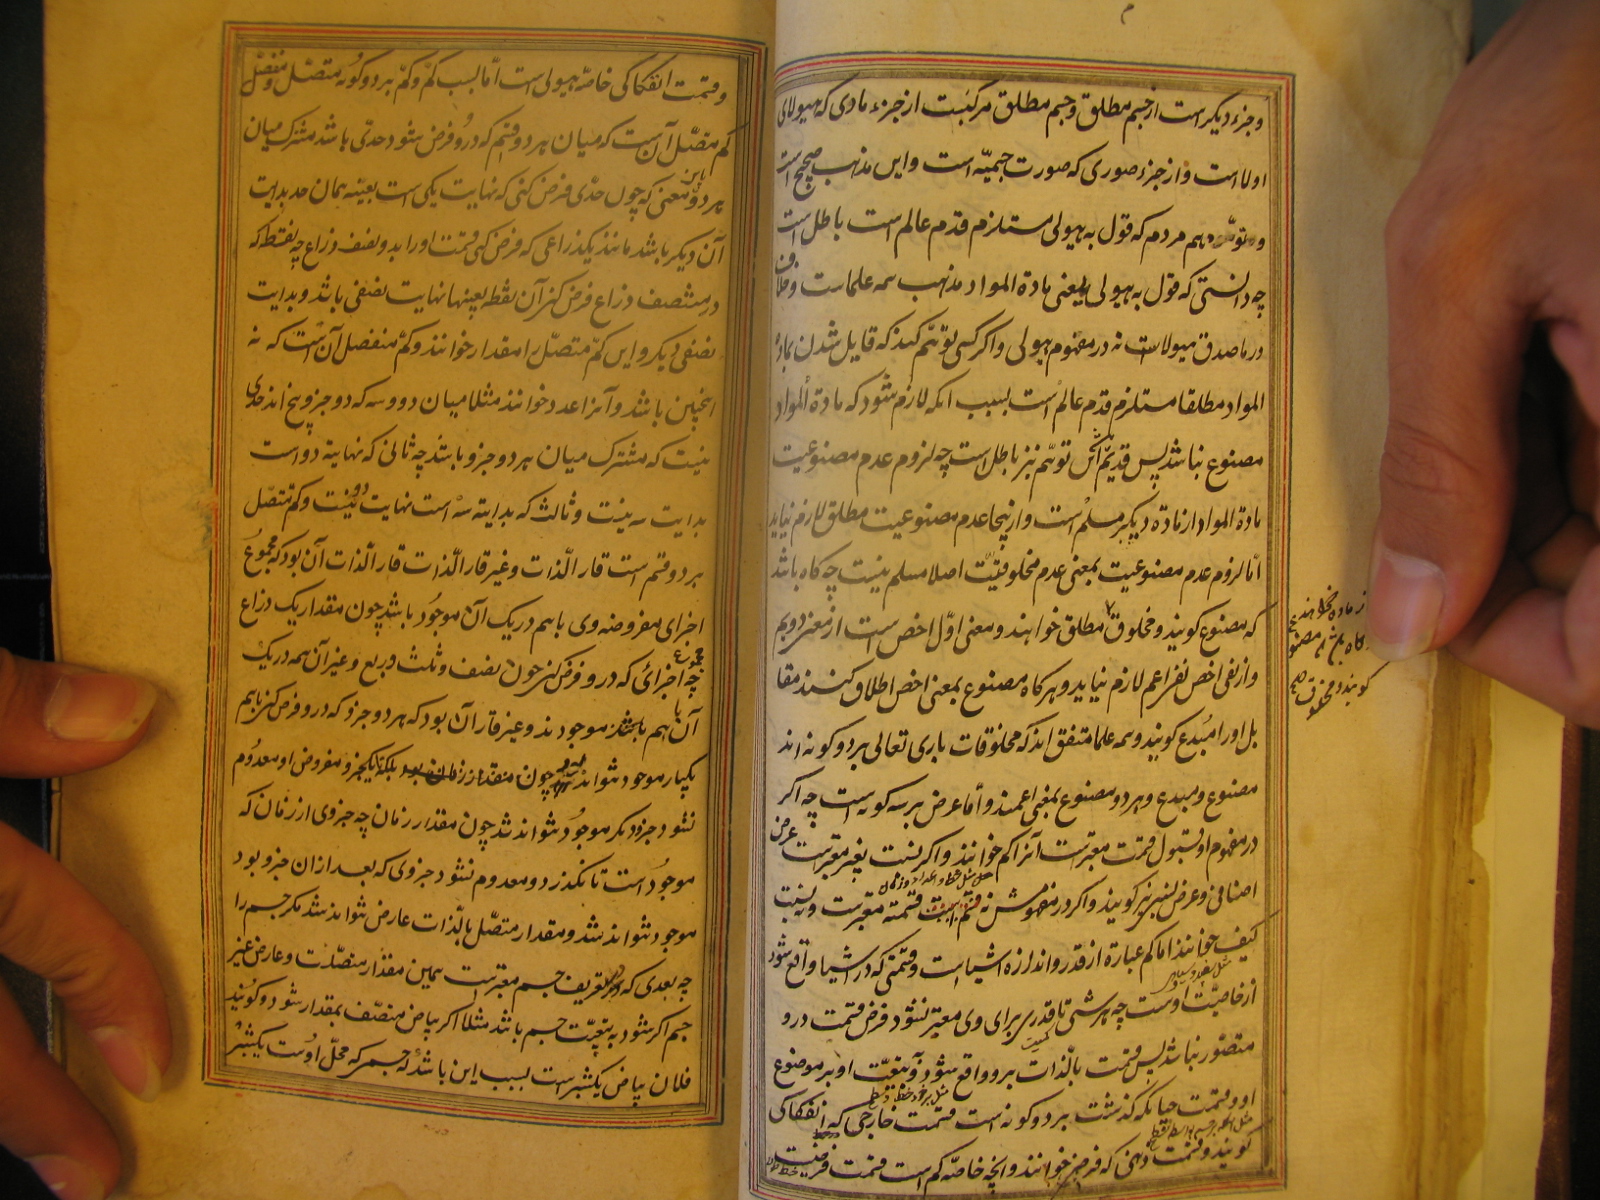 و جزء دیکر است از جسم مطلق و جسم مطلق مرکبست از جزء مادی که هیولای
اولا است و از جزء صوری که صورت جسمیّه است و این مذهب صحیح است
و توهّم مردم که قول به هیولی مستلزم قدم عالم است باطل است
چه دانستی که قول به هیولی بمعنی مادة المواد مذهب همه علماست و خلاف
در ماصدق هیولاست نه در مفهوم هیولی و اکر کسی توهّم کند که قایل شدن بمادة
المواد مطلقا مستلزم قدم عالم است بسبب انکه لازم شود که مادة المواد
مصنوع نباشد پس قدیم باشد این توهّم نیز باطل است چه لزوم عدم مصنوعیت
مادة المواد از مادهٔ دیکر مسلم است و از اینجا عدم مصنوعیت مطلق لازم نیاید
امّا لزوم عدم مصنوعیت بمعنی عدم مخلوقیّت اصلا مسلم نیست چه کاه باشد
که مصنوع کویند و مخلوق مطلق خواهند و معنی اوّل اخص است از معنی دویم
و از نفی اخص نفی اعم لازم نیاید و هرکاه مصنوع بمعنی اخص اطلاق کنند مقا
بل او را مُبدَع کویند و همه علما متفق اند که مخلوقات باری تعالی بر دو کونه اند
مصنوع و مبدع و هر دو مصنوع بمعنی اعمند و أمّا عرض بر سه کونه است چه اکر
در مفهوم او قبول قسمت معتبر است آنرا کم خوانند و اکر نسبت بغیر معتبر است عرض
اضافی و عرض نسبی نیز کویند و اکر در مفهومش نه قسمت معتبر است و نه نسبت
کیف خوانند اما کم عبارة از قدر و اندازه اشیا است و قسمتی که در اشیا واقع شود
از خاصیّت اوست چه هر شئ تا قدری برای وی معتبر نشود فرض قسمت درو
متصوّر نباشد پس قسمت بالذات برو واقع شود و به تبعیّت او بر موضوع
او و قسمت چنانکه کذشت بر دو کونه است قسمت خارجی که انفکاکی
کویند و قسمت ذهنی که فرضی خوانند و آنچه خاصّه کم است قسمت فرضیست
از ماده
کاه باشد مصنوع
کویند و مخلوق
و قسمت انفکاکی خاصّه هیولی است أمّا بسبب کم و کم بر دو کونه متصّل و منفصل
کم متصّل آن است که میان هر دو قسم که درو فرض شود حدی باشد مشترک میان
هر دو باین معنی که چون حدّی فرض کنی که نهایت یکی است بعینه همان حد بدایت
آن دیکر باشد مانند یکذراعی که فرض کنی قسمت او را بدو نصف ذراع چه نقطه که
در منتصف ذراع فرض کنی آن نقطه بعینها نهایت نصفی باشد و بدایت
نصفی دیکر و این کم متصّل را مقدار خوانند و کم منفصل آن است که نه
انچنین باشد و آنرا عدد خوانند مثلا میان دو و سه که دو جزو پنج اند حدی
نیست که مشترک میان هر دو جزو باشد چه ثانی که نهایة دو است
بدایت سه نیست و ثالث که بدایة سه است نهایت دو نیست و کم متصّل
بر دو قسم است قار الذات و غیر قار الذات قار الذات آن بود که مجموع
اجزای مفروضه وی باهم در یک آن موجود باشد چون مقدار یک ذراع
چه مجموع اجزائی که درو فرض کنی چون نصف و ثلث و ربع و غیر آن همه در یک
آن باهم موجودند و غیر قار آن بود که هر دو جزو که درو فرض کنی باهم
یکبار موجود نتواند بود چون مقدار زمان بلکه تا یکجزو مفروض او معدوم
نشود جزو دیکر موجود نتواند شد چون مقدار زمان چه جزوی از زمان که
موجود است تا نکذرد و معدوم نشود جزوی که بعد از ان جزو بود
موجود نتواند شد و مقدار متصّل بالذات عارض نتواند شد مکر جسم را
چه بعدی که در تعریف جسم معتبر است همین مقدار متصّلست و عارض غیر
جسم اکر شود به تبعیّت جسم باشد مثلا اکر بیاض متصّف بمقدار شود و کویند
فلان بیاض یکشبر است بسبب این باشد که جسمی که محلّ اوست یکشبر